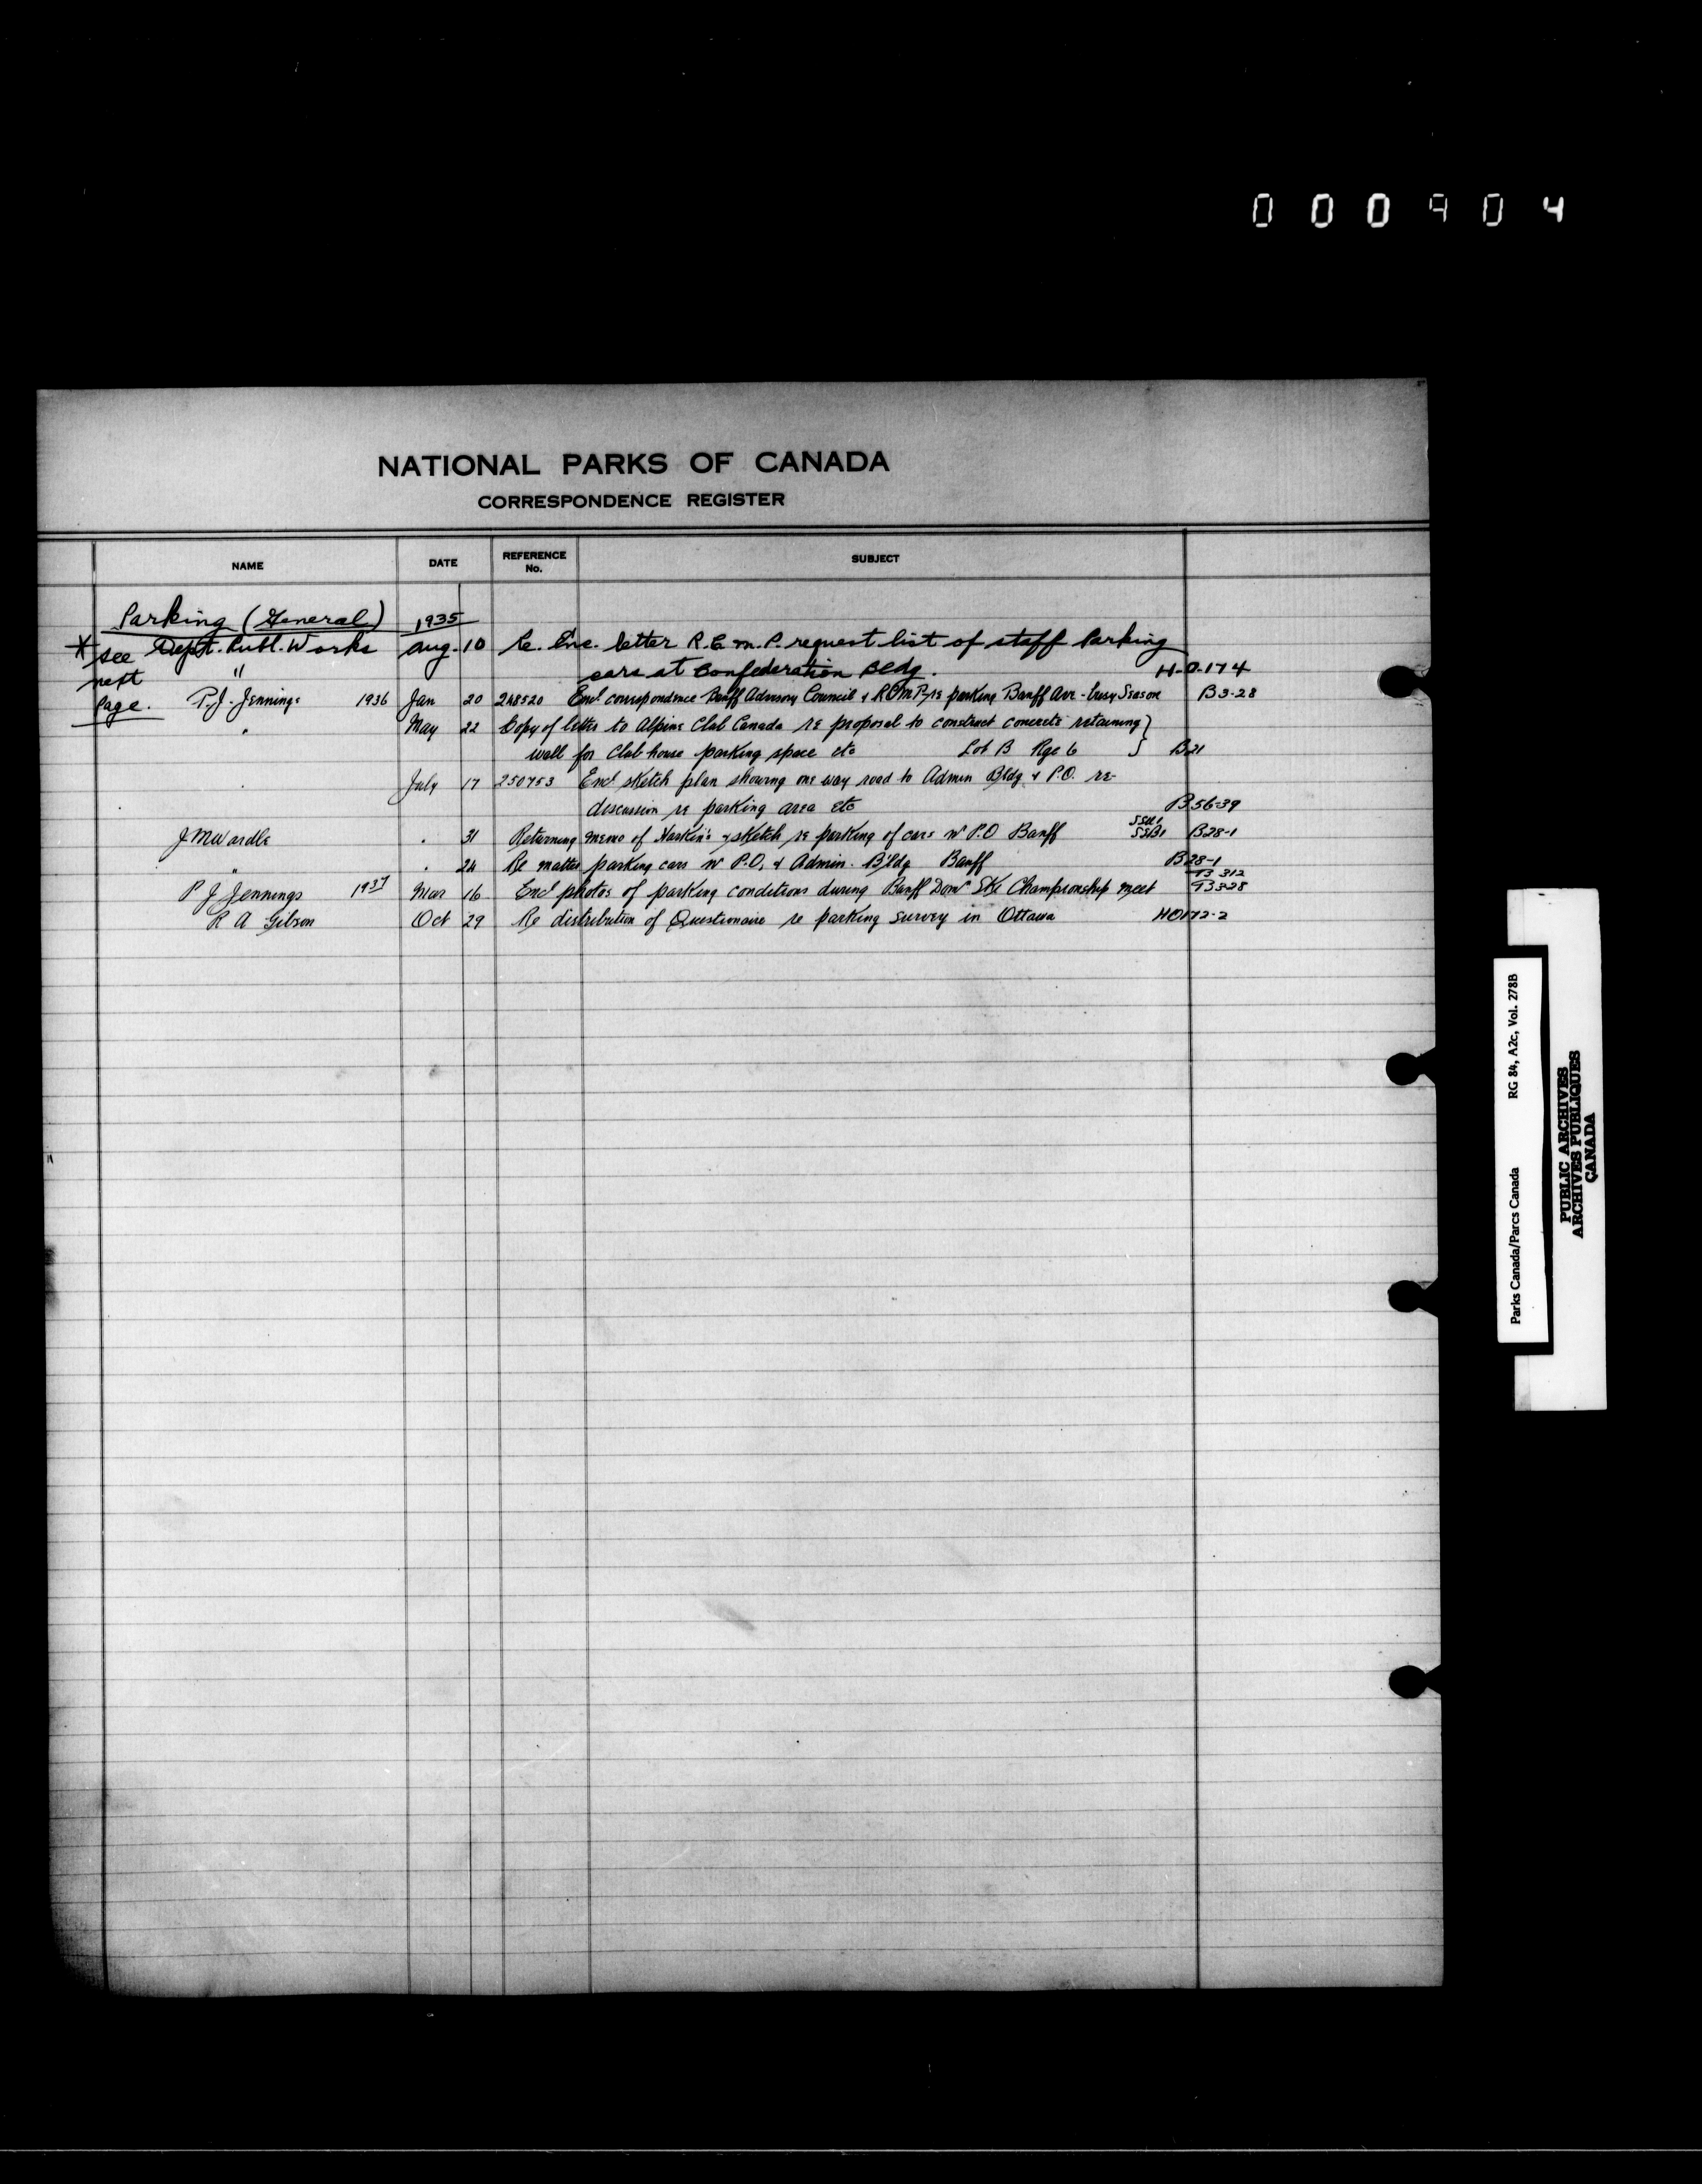 000904
NATIONAL PARKS OF CANADA
CORRESPONDENCE REGISTER
NAME DATE REFERENCE No. SUBJECT
Parking (General) 1935
* see next page. Dept. Publ. Works Aug. 10 Re. Enc. letter R.C.M.P. request list of staff Parking
" cars at Confederation Bldg. H-O-174
P.J. Jennings 1936 Jan 20 248520 Encl correspondence Banff Advisory Council & RCMP re parking Banff Ave - busy Season B3-28
" May 22 Copy of letter to Alpine Club Canada re proposal to construct concrete retaining }
wall for Club house parking space etc Lot B Rge 6 } B21
" July 17 250753 Encl sketch plan showing one way road to Admin Bldg & P.O. re-
discussion re parking area etc B56-39
J M Wardle " 31 Returning memo of Harkin's & sketch re parking of cars nr P.O Banff B28-1
" " 24 Re matter parking cars nr P.O, & Admin. B'ldg Banff B28-1
P J Jennings 1937 Mar 16 Encl photos of parking conditions during Banff Domn Ski Championship meet B312 B328
R A Gibson Oct 29 Re distribution of Questionaire re parking survey in Ottawa HO172-2
Parks Canada/Parcs Canada RG 84, A2c, Vol. 278B
PUBLIC ARCHIVES
ARCHIVES PUBLIQUES
CANADA